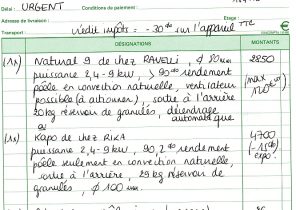 Délai : URGENT Conditions du paiement :
Adresse de livraison : Etage :
Transport : crédit impôts = -30% sur l'appareil TTC
DÉSIGNATIONS MONTANTS
(1x) Natural 9 de chez RAVELLI, Ø 80mm 2850
puissance 2,4-9 kw, > 90% rendement
poêle en convection naturelle, ventilateur (max
possible (à actionner), sortie à l'arrière
20kg réservoir de granulés, démarrage
automatique
(1x) Kapo de chez RIKA 4700
puissance 2,4-9 kw, 90,2% rendement (-15%
poêle seulement en convection naturelle expo.
sortie à l'arrière, 29 kg réservoir de
granulés, Ø 100 mm